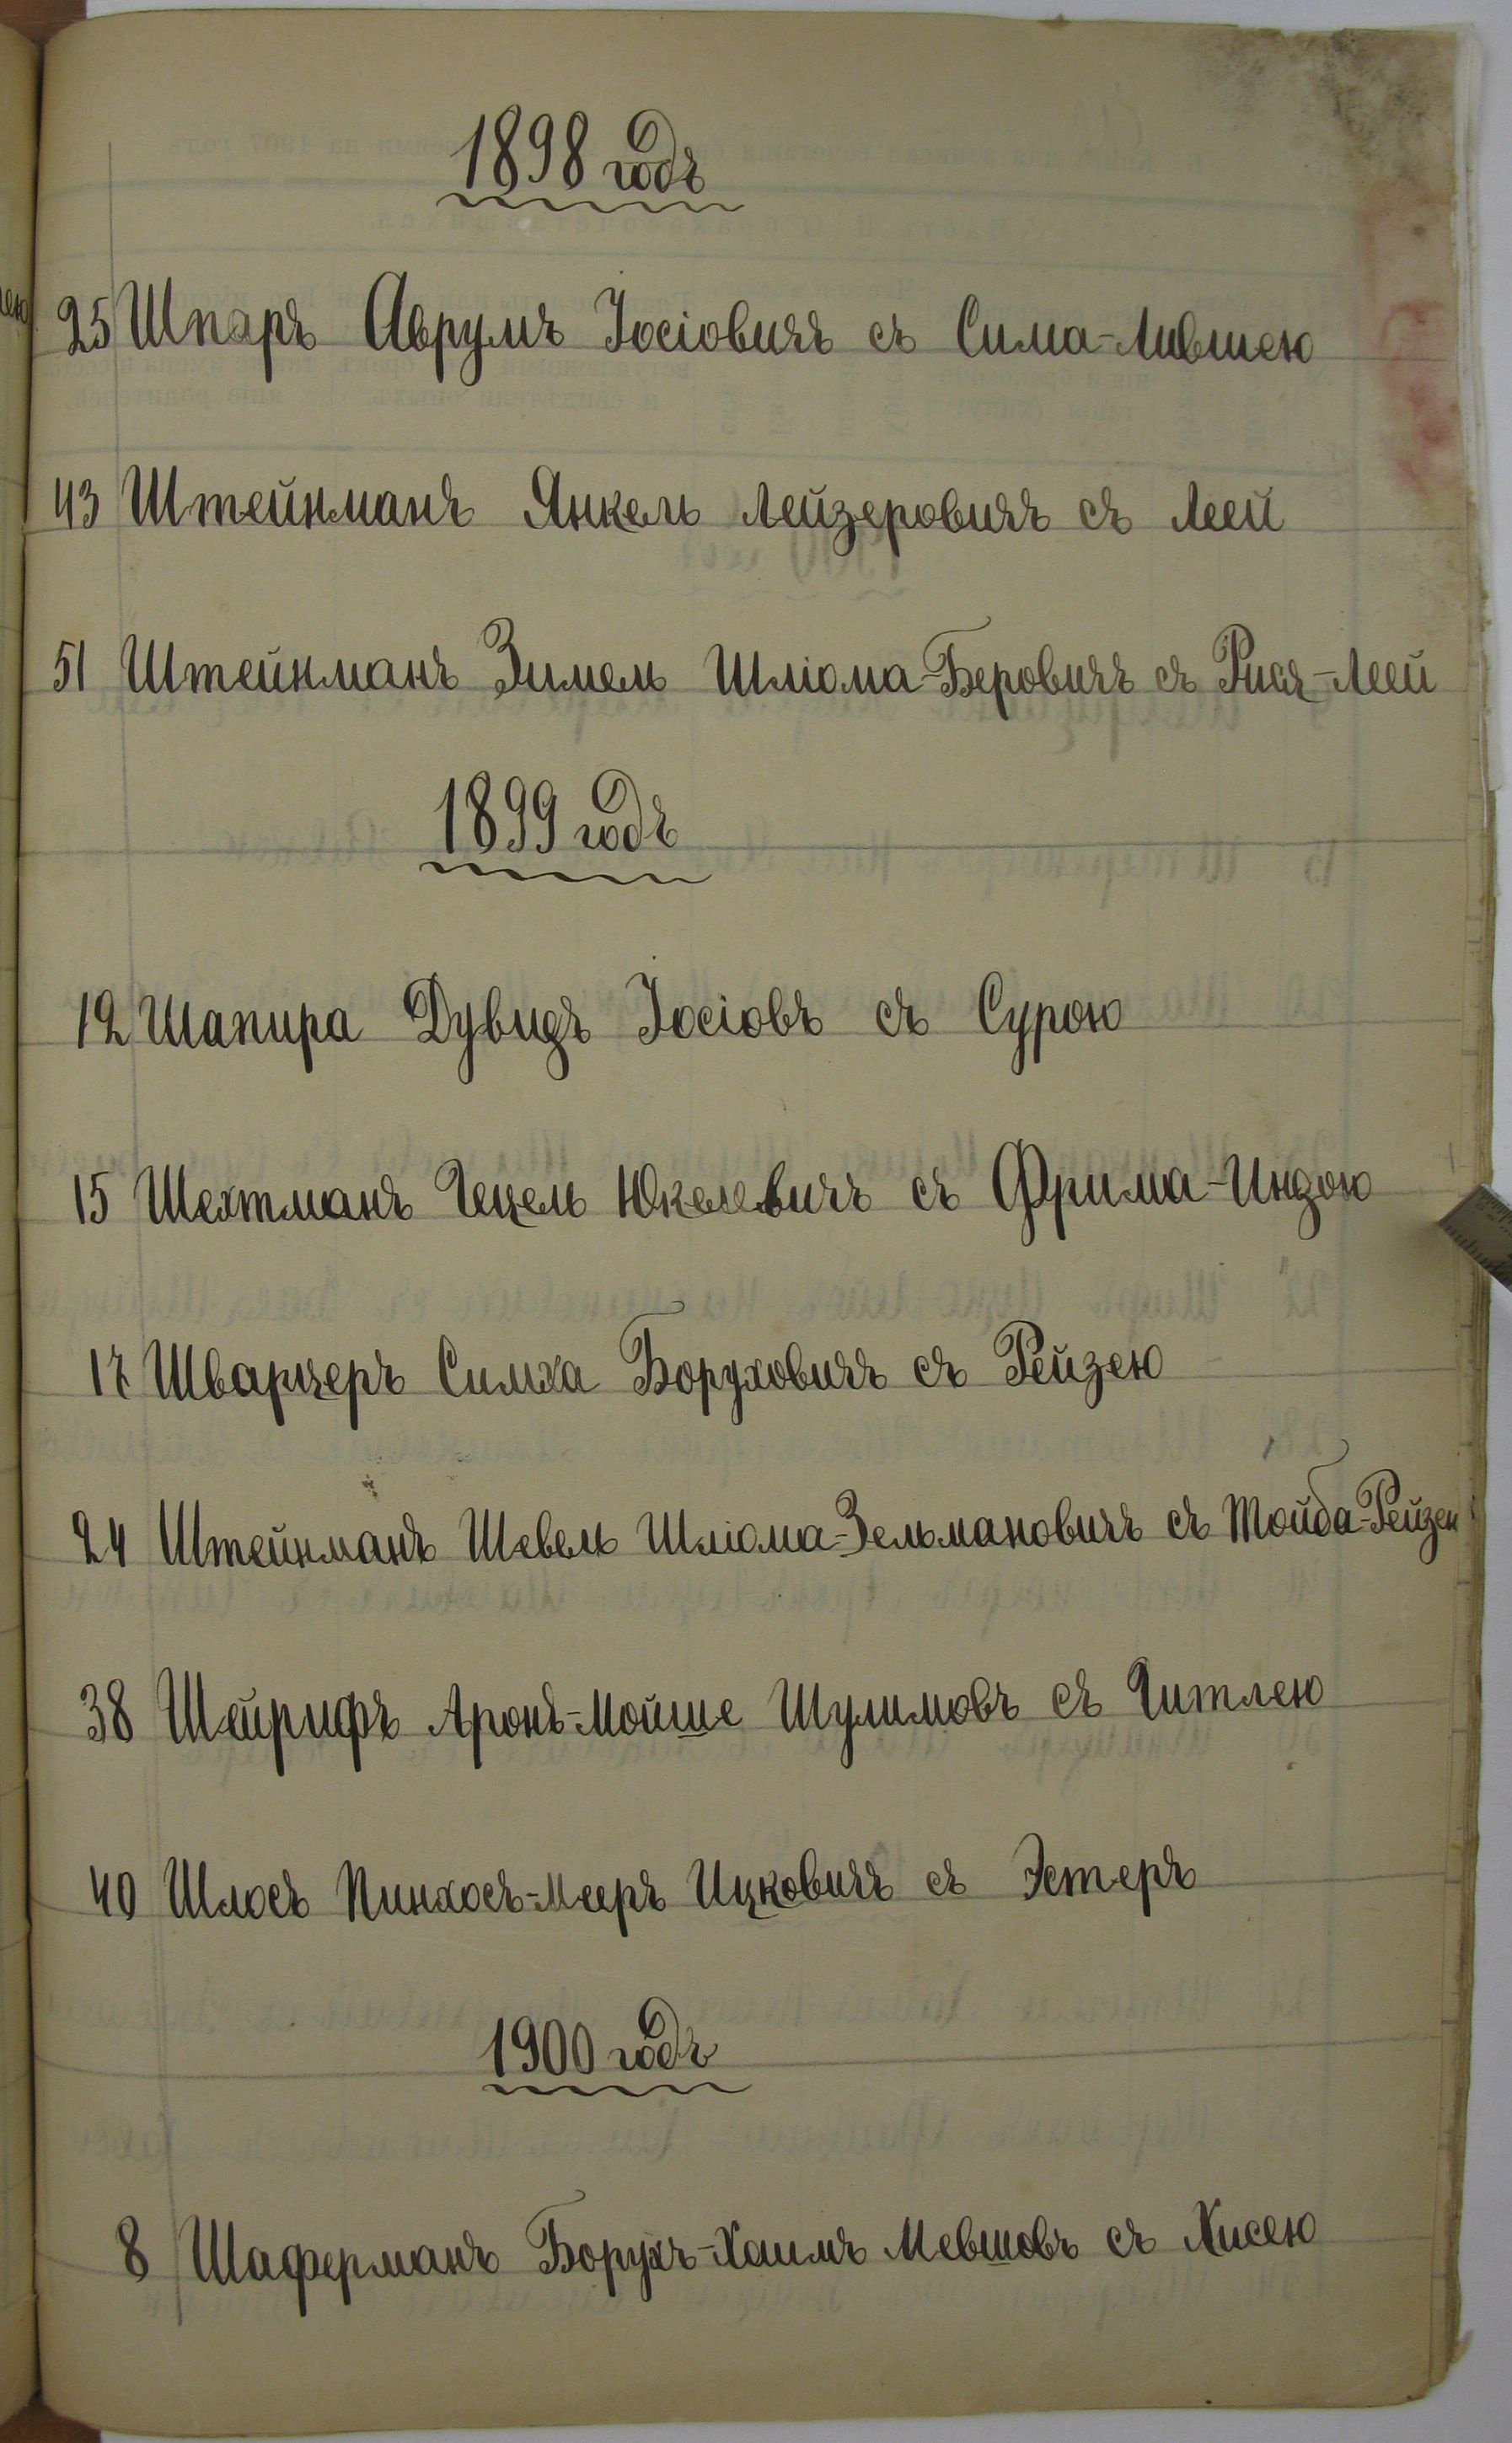 1898 годъ
25 Шпаръ Аврумъ Іосіовичъ съ Сима-Лившею
43 Штейнманъ Янкель Лейзеровичъ съ Леей
51 Штейнманъ Зимель Шліома-Беровичъ съ Рися-Леей
1899 годъ
12 Шапира Дувидъ Іосіовъ съ Сурою
15 Шехтманъ Гецель Юкелевичъ съ Фрима-Индою
17 Шварцеръ Симха Боруховичъ съ Рейзею
24 Штейнманъ Шевель Шліома-Зельмановичъ съ Тойба-Рейзею
38 Шейрифъ Аронъ-Мойше Шулимовъ съ Гитлею
40 Шлосъ Пинхосъ-Мееръ Ицковичъ съ Эстеръ
1900 годъ
8 Шаферманъ Борухъ-Хаимъ Мевшовъ съ Хисею